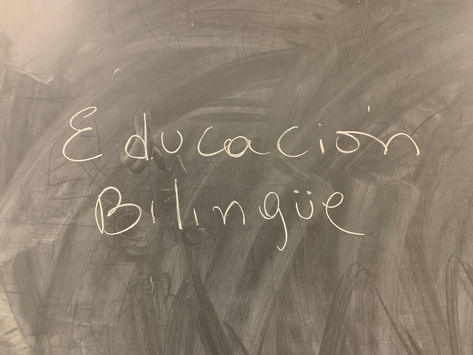 Educación
Bilingüe